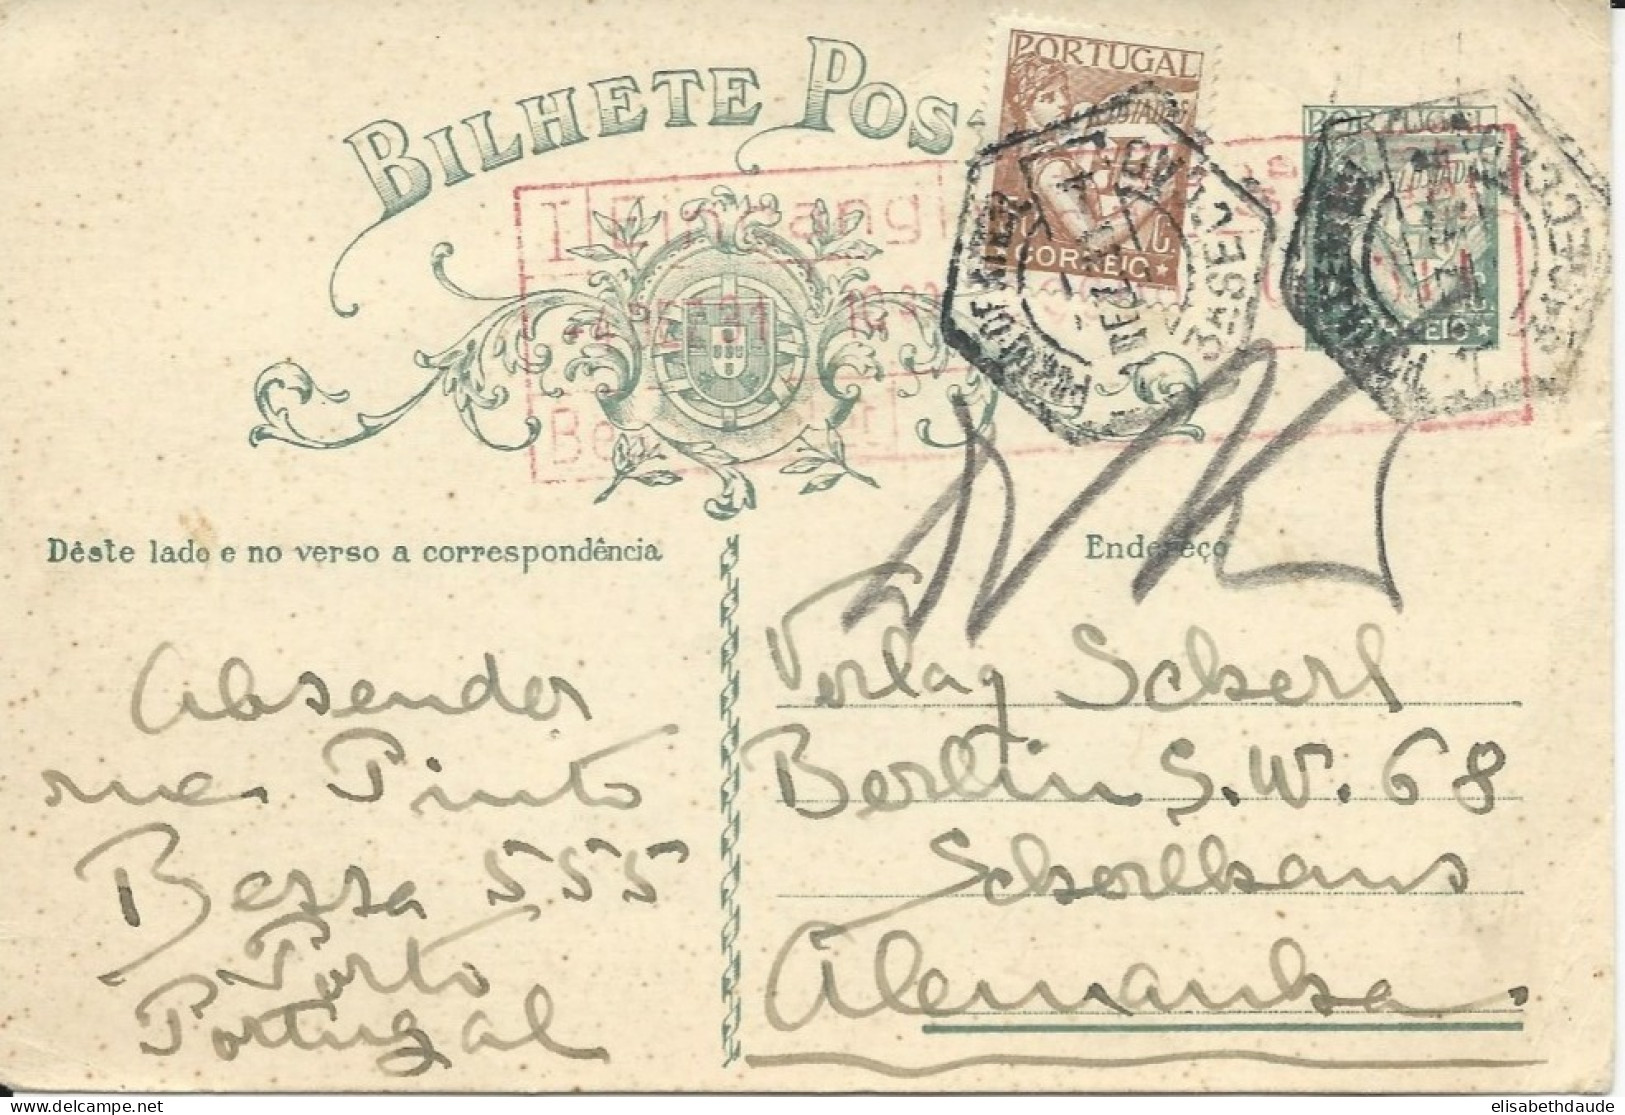 BILHETE POS
PORTUGAL
LUSIADAS
CORREIO
PORTUGAL
CORREIO
3ª SECCAO
3ª SECCAO
I Eingang
-4 DEZ 31 10
Be
Dêste lado e no verso a correspondência
Endereço
Absender
rua Pinto
Bessa 555
Porto
Portugal
Verlag Scherl
Berlin S.W. 68
Scherlhaus
Alemanha.
elisabethdaude